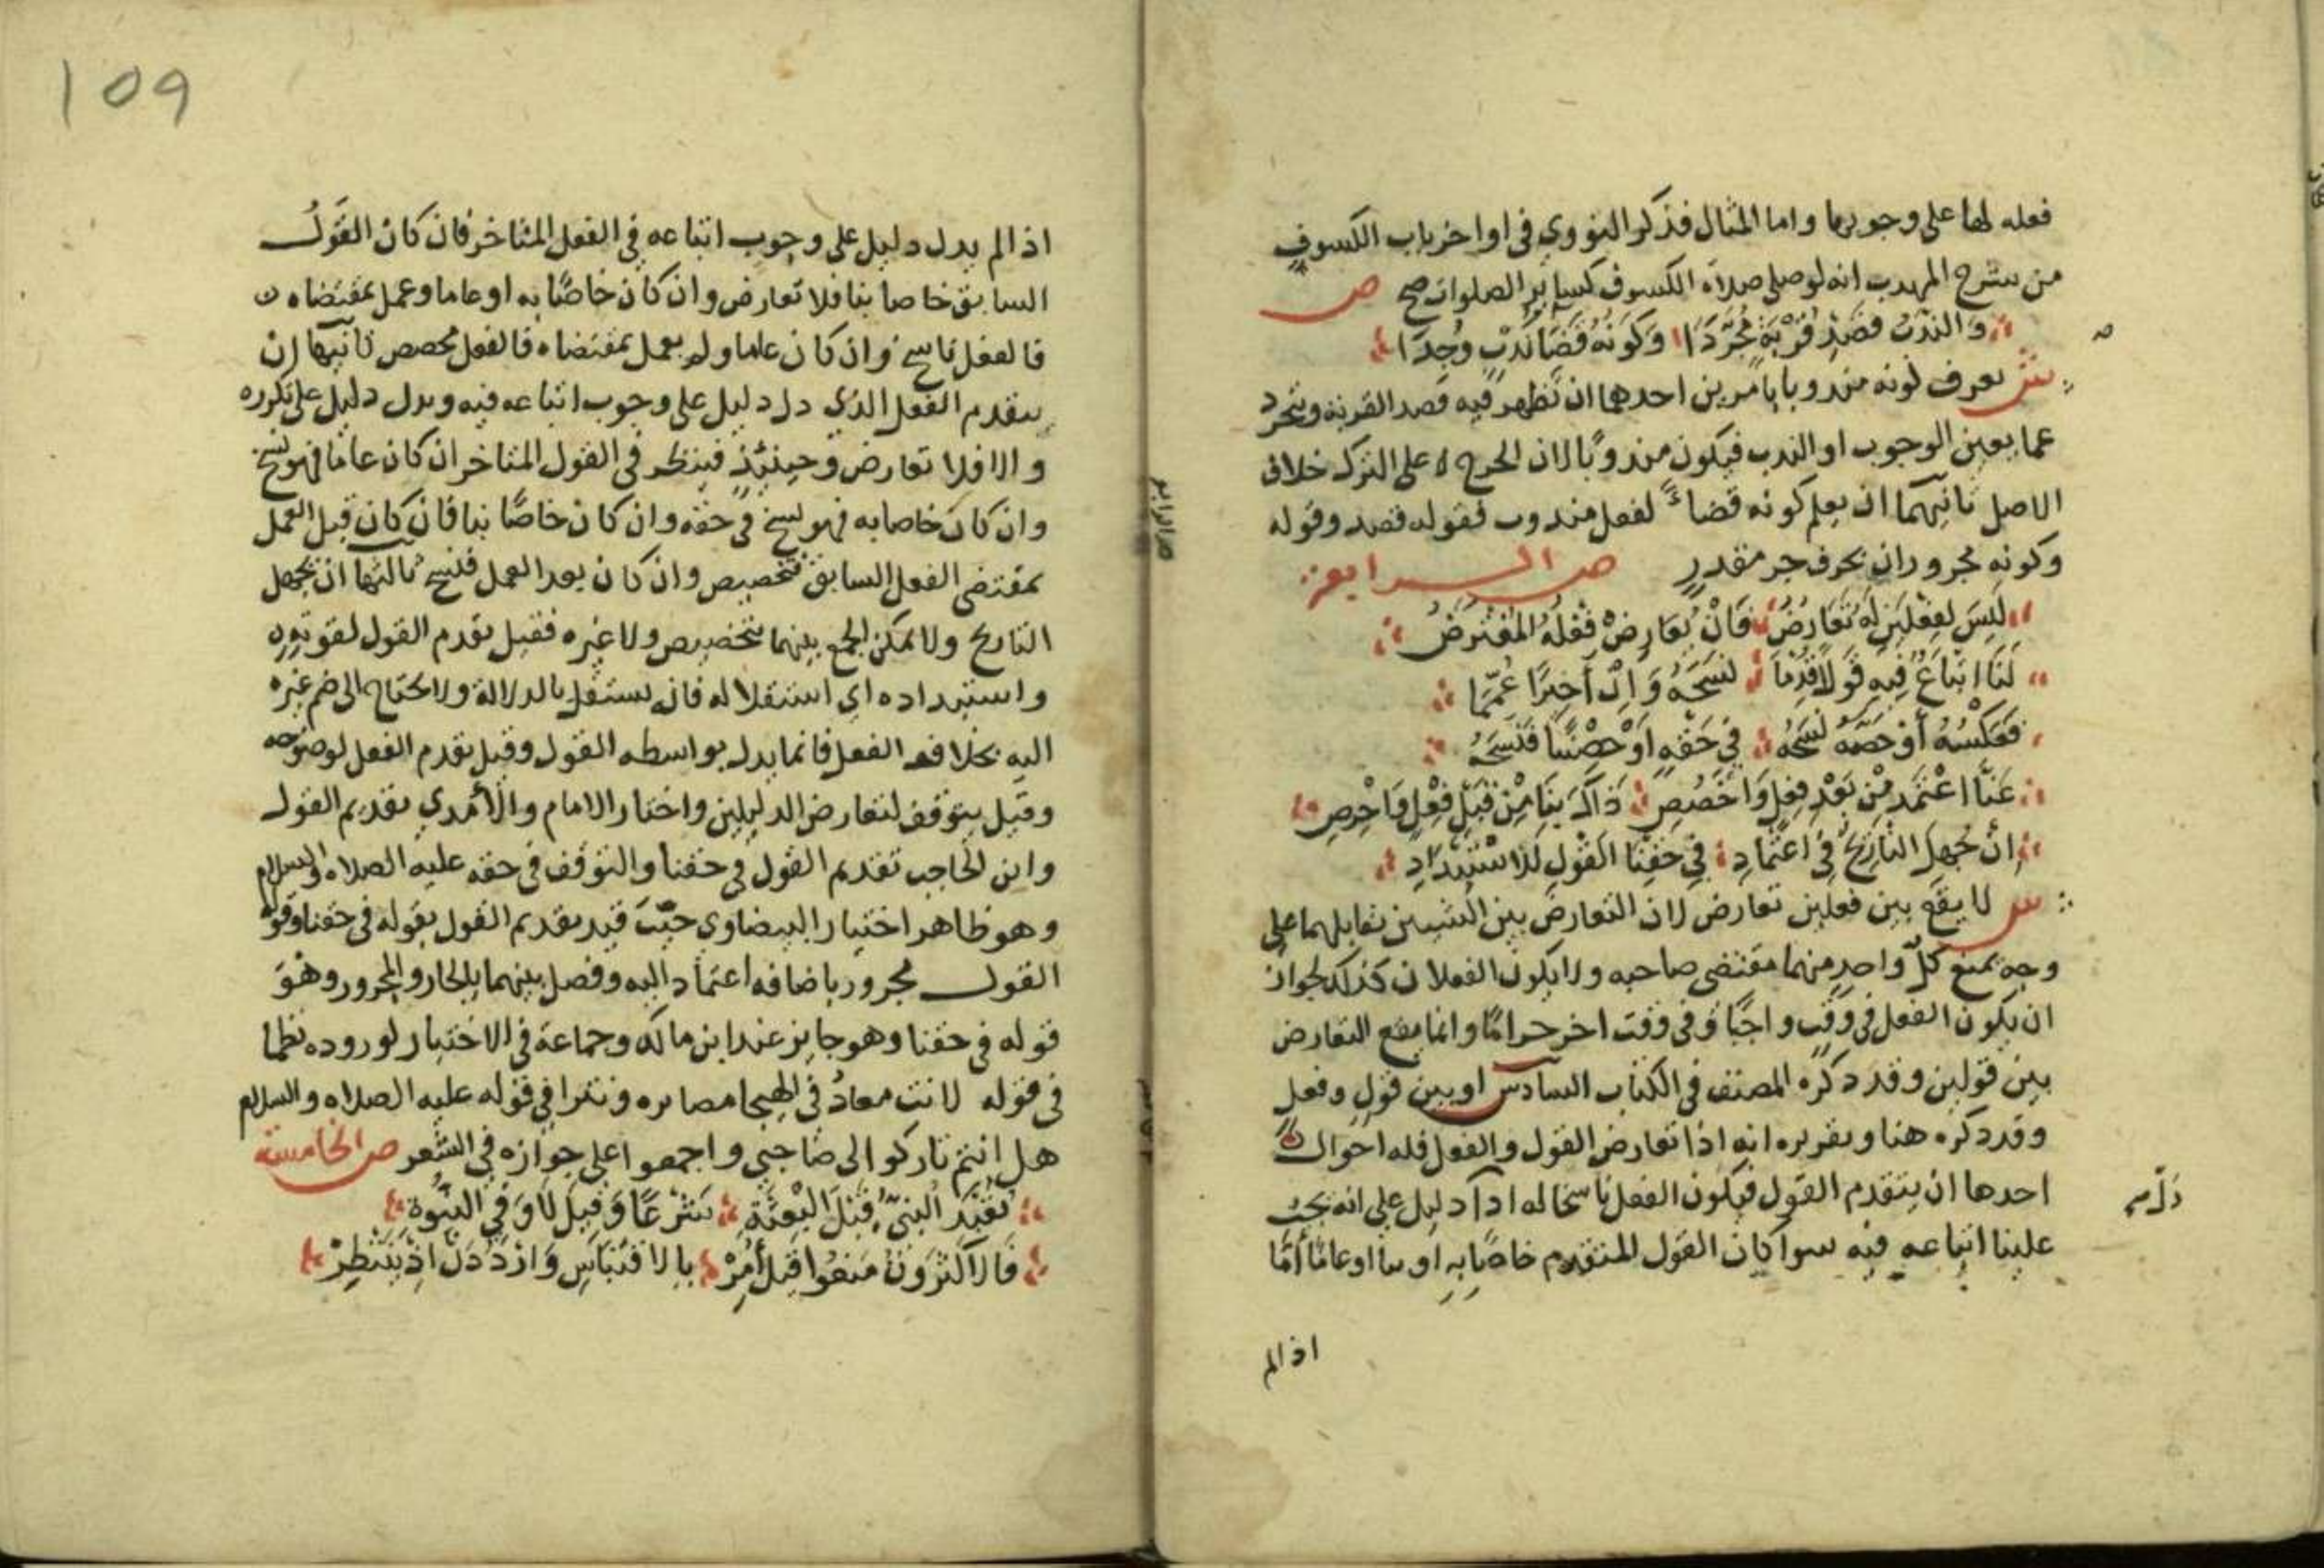 فعله لها على وجوبها واما المثال فذكر النووي في اواخر باب الكسوف
من شرح المهذب انه لو صلى صلاة الكسوف كساير الصلوات صح ص
والندب قصد قربة مجردا وكونه قضا ندب وجدا
ش تعرف كونه مندوبا بامرين احدهما ان تظهر فيه قصد القربة وتجرد
عما يعين الوجوب او الندب فيكون مندوبا لان الحرج على الترك خلاف
الاصل ثانيهما ان يعلم كونه قضاء لفعل مندوب فقوله قصد وقوله
وكونه مجروران بحرف جر مقدر ص الرابعة
ليس لفعلين له تعارض فان يعارض فعله المفترض
لنا اتباع فيه قولا قدما نسخه وان أخيرا عمما
فعكسه أو خصه نسخه في حقه أو خصنا فنسخه
عنا اعتمد من بعد فعل واخصص ذاك بنا من قبل فعل واحرص
ان جهل التاريخ في اعتماد في حقنا القول لذا استبداد
ش لا يقع بين فعلين تعارض لان التعارض بين الشيين تقابلهما على
وجه يمنع كل واحد منهما مقتضى صاحبه ولا يكون الفعلان كذلك لجواز
ان يكون الفعل في وقت واجبا وفي وقت اخر حراما وانما يقع التعارض
بين قولين وقد ذكره المصنف في الكتاب السادس او بين قول وفعل
وقد ذكره هنا وتقريره انه اذا تعارض القول والفعل فله احوال
احدها ان يتقدم القول فيكون الفعل ناسخا له اذا دليل على انه يجب
دل
علينا اتباعه فيه سوا كان القول المتقدم خاصا به او بنا او عاما أما
اذا لم
109
اذا لم يدل دليل على وجوب اتباعه في الفعل المتاخر فان كان القول
السابق خاصا بنا فلا تعارض وان كان خاصا به او عاما وعمل بمقتضاه
فالفعل ناسخ وان كان عاما ولم يعمل بمقتضاه فالفعل مخصص ثانيها ان
يتقدم الفعل الذي دل دليل على وجوب اتباعه فيه ويدل دليل على تكرره
والا فلا تعارض وحينئذ فينظر في القول المتاخر ان كان عاما فهو نسخ
وان كان خاصا به فهو نسخ في حقه وان كان خاصا بنا فان كان قبل العمل
بمقتضى الفعل السابق فتخصيص وان كان بعد العمل فنسخ ثالثها ان يجهل
التاريخ ولا يمكن الجمع بينهما بتخصيص ولا غيره فقيل يقدم القول لقوته
واستبداده اي استقلاله فانه يستقل بالدلالة ولا يحتاج الى ضم غيره
اليه بخلاف الفعل فانما يدل بواسطه القول وقيل يقدم الفعل لوضوحه
وقيل يتوقف لتعارض الدليلين واختار الامام والأمدي تقديم القول
وابن الحاجب تقديم القول في حقنا والتوقف في حقه عليه الصلاه والسلام
وهو ظاهر اختيار البيضاوي حيث قيد تقديم القول بقوله في حقنا وقوله
القول مجرور باضافه اعتماد اليه وفصل بينهما بالجار والمجرور وهو
قوله في حقنا وهو جايز عند ابن مالك وجماعة في الاختيار لوروده نظما
في قوله لانت معاد في الهيجا مصابره ونثرا في قوله عليه الصلاه والسلام
هل انتم تاركوا لى صاحبي واجمعوا على جوازه في الشعر ص الخامسة
تعبد النبي قبل البعثة شرعا وقيل لا وفي النبوة
فالاكثرون منعوا قبل أمر بالاقتباس واردد دل اذ ينتظر